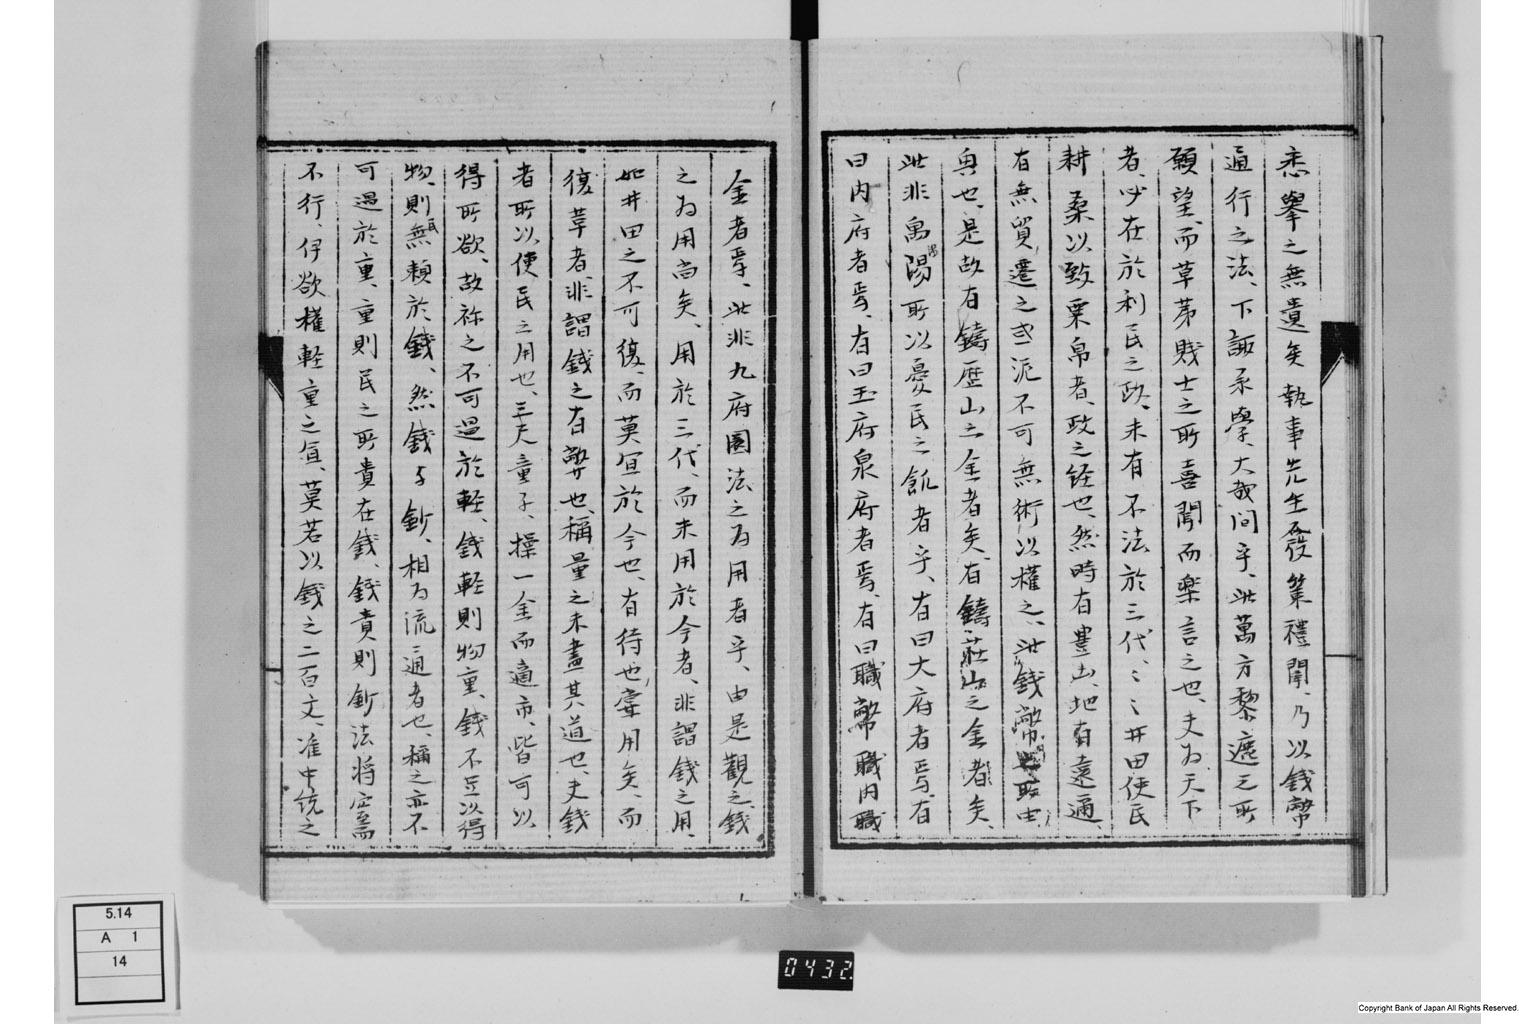 悉擧之無遺矣執事先生發策禮闈、乃以錢幣
通行之法、下諏承學、大哉问乎、此萬方黎庶之所
願望、而草茅賤士之所喜聞而樂言之也、夫为天下
者、必在於利民之政、未有不法於三代、〻〻井田使民
耕桑以致粟帛者、政之経也、然時有豊凶、地有遠邇、
有無貿遷之或泥不可無術以權之、此錢幣所由
興也、是故有鑄歴山之金者矣、有鑄莊山之金者矣、
此非禹湯所以憂民之飢者乎、有曰大府者焉、有
曰内府者焉、有曰玉府泉府者焉、有曰職幣職内職
金者焉、此非九府圜法之为用者乎、由是觀之、錢
之为用尚矣、用於三代、而未用於今者、非謂錢之用、
如井田之不可復、而莫宜於今也、有待也、嘗用矣、而
復革者、非謂錢之有弊也、稱量之未盡其道也、夫錢
者所以使民之用也、三尺童子、操一金而適市、皆可以
得所欲、故祢之不可過於軽、錢軽則物重、錢不足以得
物、則民無頼於錢、然錢与鈔、相为流通者也、稱之亦不
可過於重、重則民之所貴在錢、錢貴則鈔法将窒焉
不行、伊欲權軽重之宜、莫若以錢之二百文、准中統之
5.14
A 1
14
0432
Copyright Bank of Japan All Rights Reserved.